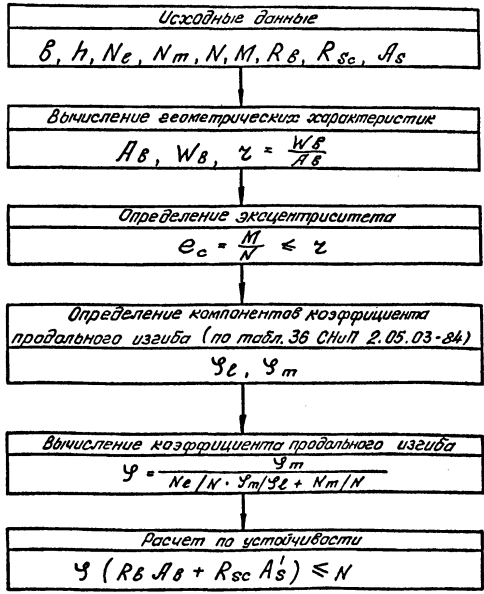 Исходные данные
b, h, Nl, Nm, N, M, Rb, Rsc, As
Вычисление геометрических характеристик
Ab, Wb, r = Wb/Ab
Определение эксцентриситета
ec = M/N ≤ r
Определение компонентов коэффициента
продольного изгиба (по табл. 36 СНиП 2.05.03-84)
φl, φm
Вычисление коэффициента продольного изгиба
φ = φm / (Nl/N · φm/φl + Nm/N)
Расчет по устойчивости
φ (Rb Ab + Rsc A's) ≤ N